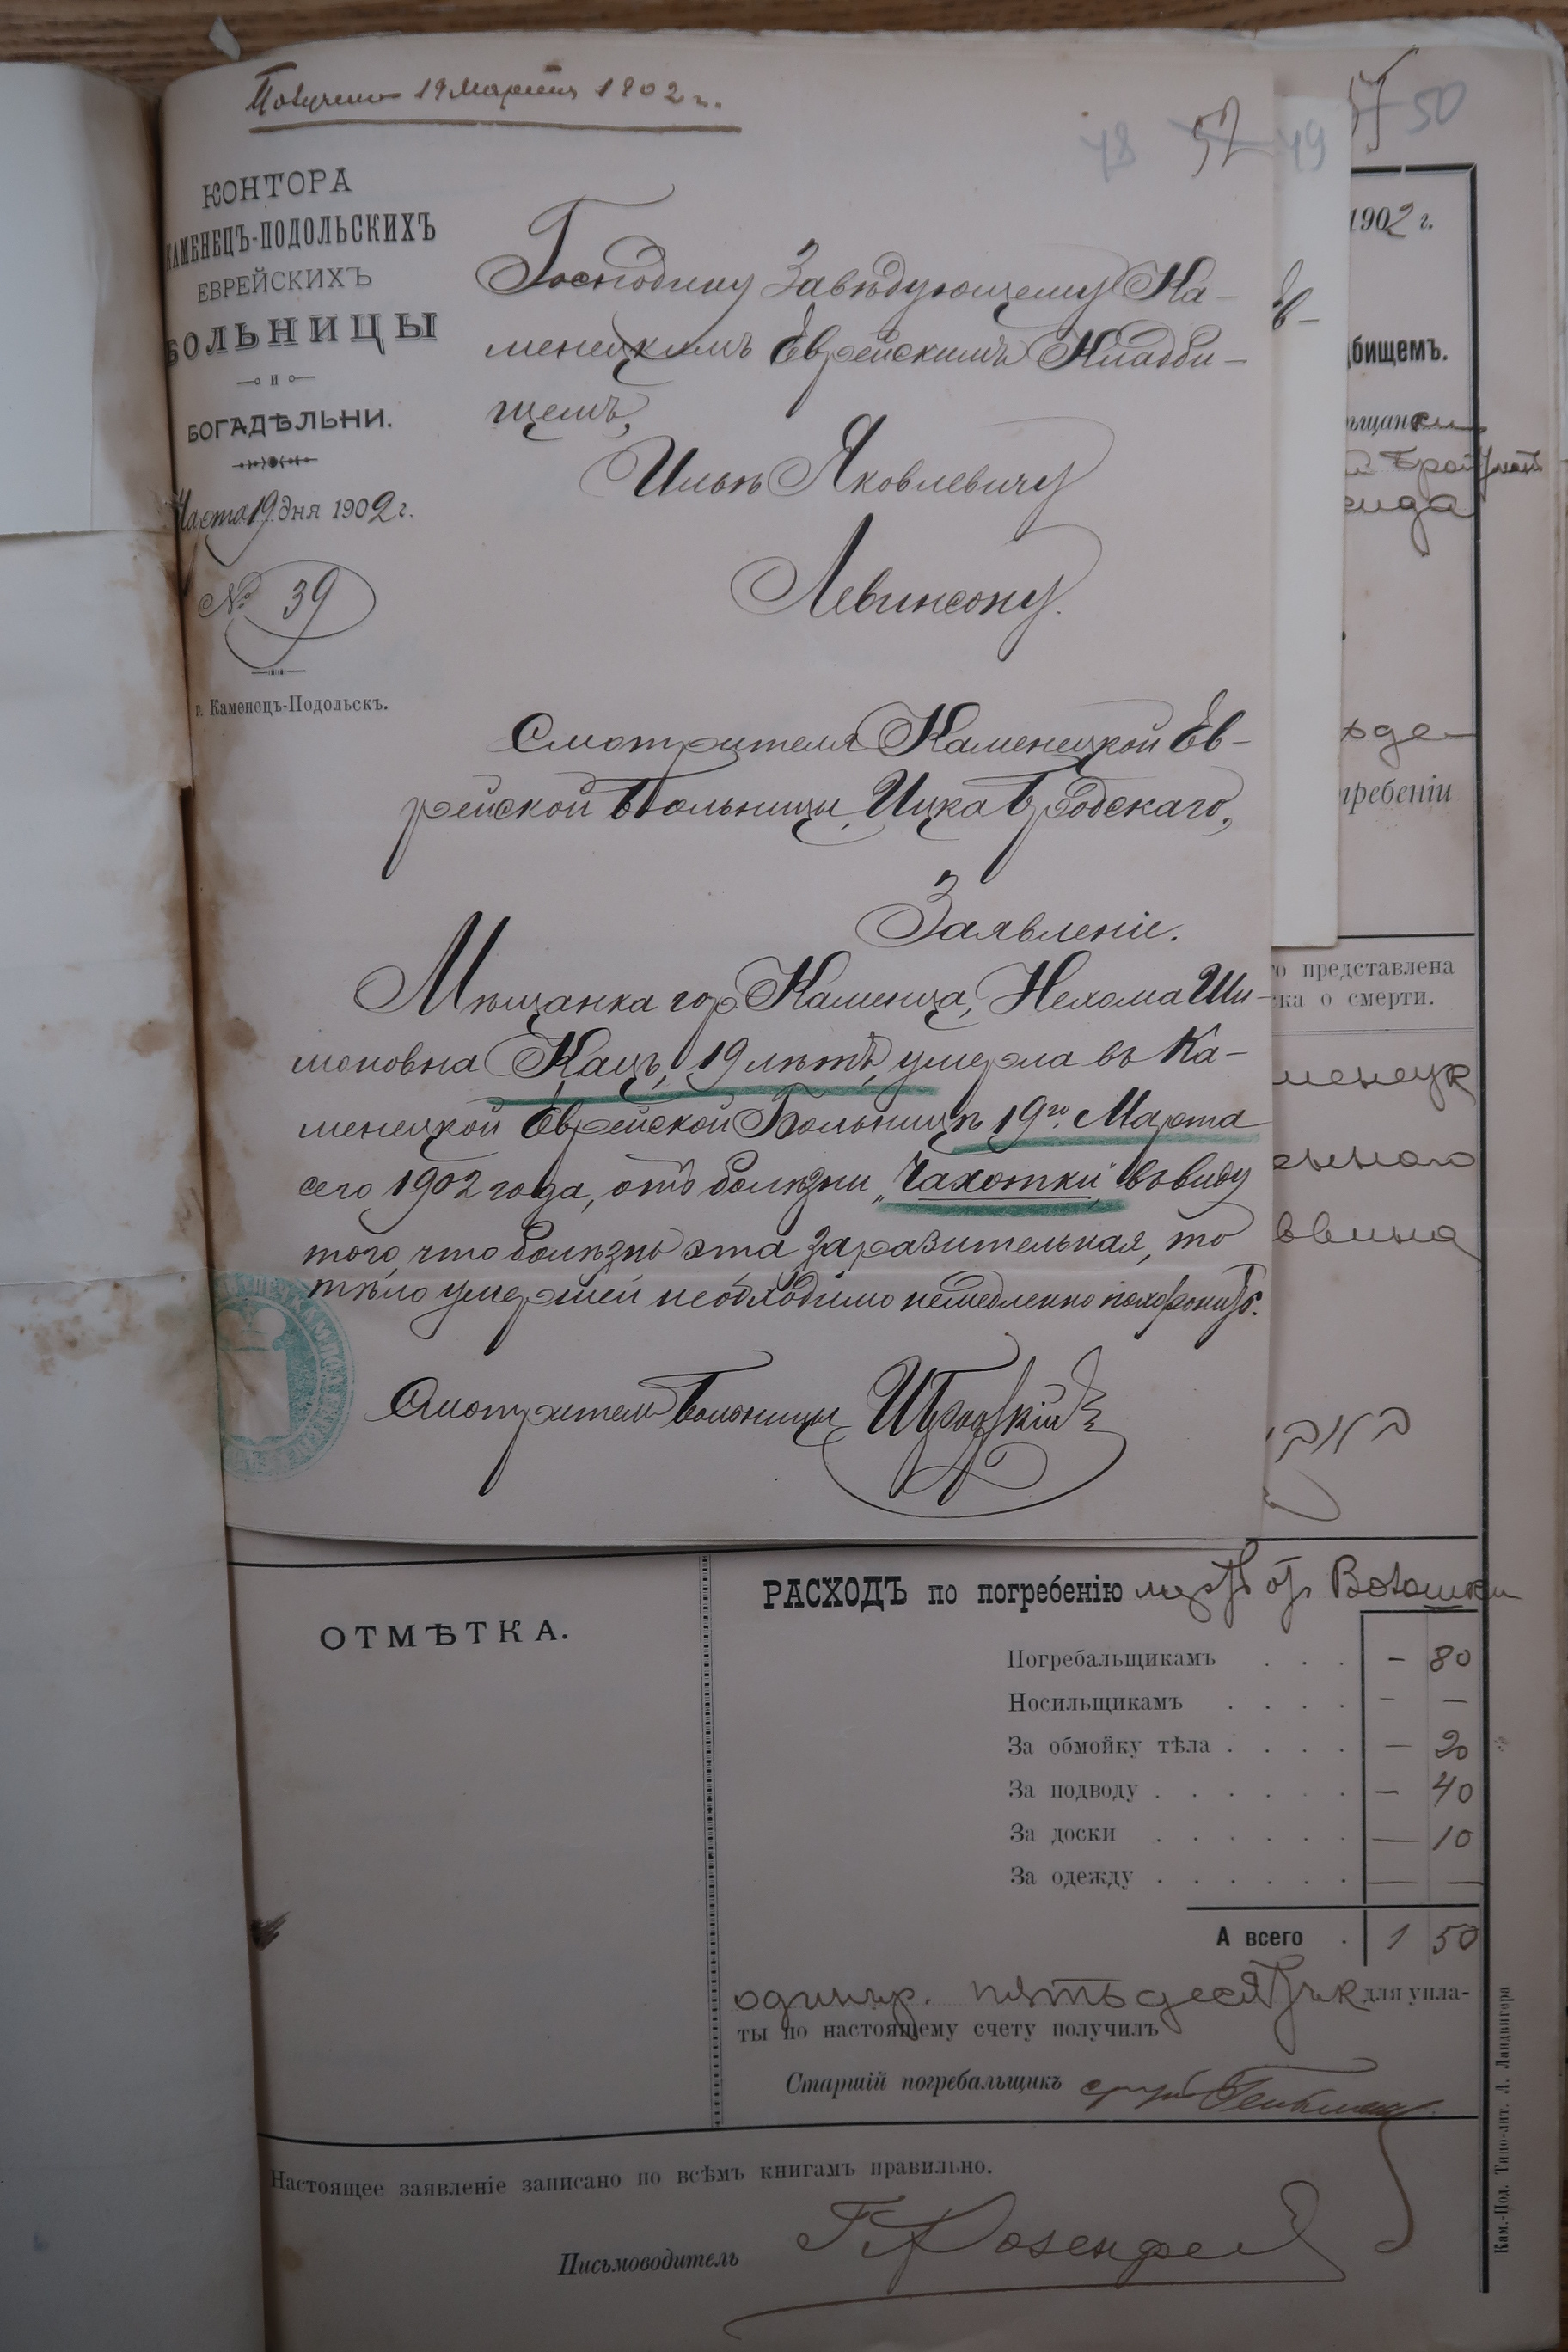 Получено 19 Марта 1902 г.
48 52 49 50
КОНТОРА
КАМЕНЕЦЪ-ПОДОЛЬСКИХЪ
ЕВРЕЙСКИХЪ
БОЛЬНИЦЫ
и
БОГАДѢЛЬНИ.
Марта 19 дня 1902 г.
№ 39
г. Каменецъ-Подольскъ.
Господину Завѣдующему Ка-
менецкимъ Еврейскимъ Кладби-
щемъ,
Ильѣ Яковлевичу
Левинсону.
Смотрителя Каменецкой Ев-
рейской Больницы, Ицка Бродскаго,
Заявленіе.
Мѣщанка гор. Каменца, Нехома Ши-
моновна Кацъ, 19 лѣтъ, умерла въ Ка-
менецкой Еврейской Больницѣ 19го Марта
сего 1902 года, отъ болѣзни „Чахотки", Въ виду
того, что болѣзнь эта заразительная, то
тѣло умершей необходимо немедленно похоронить.
Смотритель Больницы ИБродскій
1902 г.
бищемъ.
ѣщанки
ребеніи
о представлена
ка о смерти.
менецк
ОТМѢТКА.
РАСХОДЪ по погребенію
Погребальщикамъ . . . — 80
Носильщикамъ . . . . — —
За обмойку тѣла . . . . — 20
За подводу . . . . . . — 40
За доски . . . . . . — 10
За одежду . . . . . . — —
А всего . 1 50
один р. пятьдесятъ к для упла-
ты по настоящему счету получилъ
Старшій погребальщикъ
Настоящее заявленіе записано по всѣмъ книгамъ правильно.
Письмоводитель Розенфел
Кам.-Под. Типо-лит. Л. Ландвигера